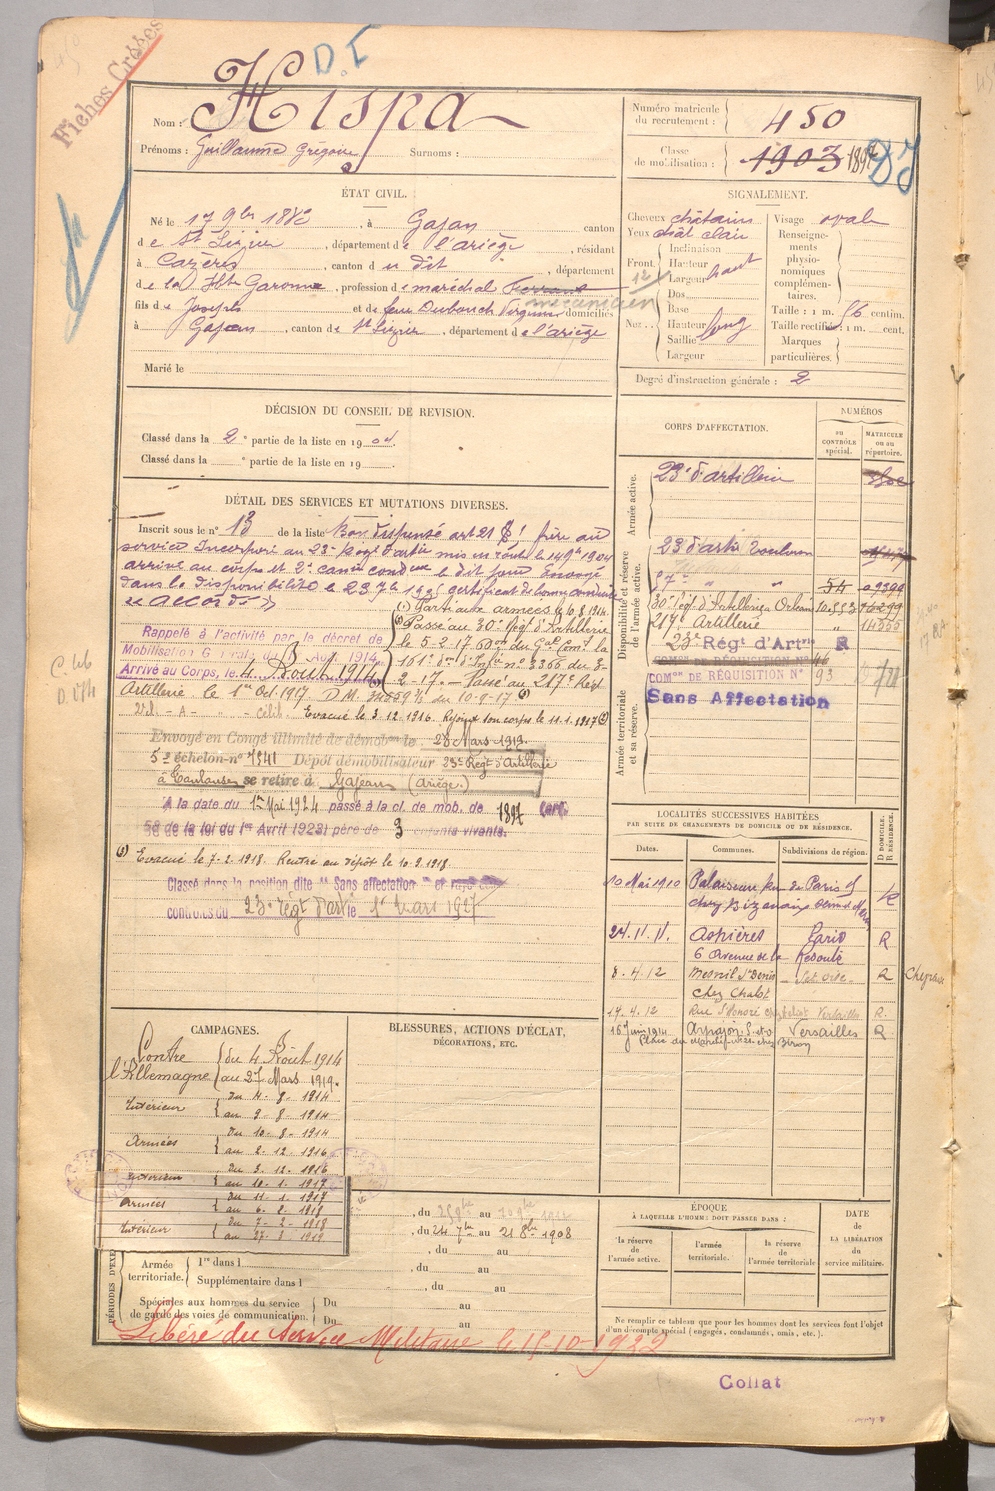 Fiches Croses
D.I
Nom : Hispa
Prénoms : Guillaume Grégoire Surnoms :
Numéro matricule du recrutement : 450
Classe de mobilisation : 1903 1897
ÉTAT CIVIL.
Né le 17 9bre 1883, à Gajan canton
de St Lizier, département de l'ariège, résidant
à Cazères, canton du dit, département
de la Hte Garonne, profession de maréchal Ferrant
mécanicien
fils de Joseph et de domiciliés
à Gajan, canton de St Lizier, département de l'ariège
Marié le
SIGNALEMENT.
Cheveux châtains
Yeux chât clair
Front. Inclinaison
Hauteur haut
Largeur
Nez. Dos
Base
Hauteur long
Saillie
Largeur
Visage ovale
Renseignements physionomiques complémentaires.
Taille : 1 m. 56 centim.
Taille rectifiée : 1 m. cent.
Marques particulières.
Degré d'instruction générale : 2
DÉCISION DU CONSEIL DE REVISION.
Classé dans la 2e partie de la liste en 1904.
Classé dans la e partie de la liste en 19
DÉTAIL DES SERVICES ET MUTATIONS DIVERSES.
Inscrit sous le n° 13 de la liste Bon dispensé art 21 frère au
service Incorporé au 23e Régt d'artie mis en route le 14 9bre 1904
arrivé au corps et 2e canr condeur le dit jour Envoyé
dans la disponibilité le 23 7bre 1905 certificat de bonne conduite
accordé
(1) Parti aux armées le 10.8.1914.
Rappelé à l'activité par le décret de
Mobilisation Générale du Août 1914
Arrivé au Corps, le 4 Août 1914
Passé au 30e Régt d'Artillerie
le 5-2-17 du Gal Comt la
161e don d'Infie n° 3366 du 3-
2-17. — Passé au 217e Régt
Artillerie le 1er Oct 1917. D.M. du 10-9-17
Evacué le 3.12.1916. Rejoint son corps le 11.1.1917
Envoyé en Congé illimité de démobon le 28 Mars 1919
5e échelon n° 7341 Dépôt démobilisateur 23e Régt d'Artillerie
à Toulouse se retire à Gajean (Ariège.)
A la date du 1er Mai 1924 passé à la cl. de mob. de 1897 (art.
58 de la loi du 1er Avril 1923) père de 3 enfants vivants.
Evacué le 7.2.1918. Rentré au dépôt le 10.2.1918.
Classé dans la position dite "Sans affectation" et rayé des
contrôles du 23e régt d'artie le 1er mars 1927
CORPS D'AFFECTATION.
NUMÉROS
AU CONTRÔLE spécial.
MATRICULE ou au répertoire.
Armée active.
23e d'artillerie
Disponibilité et réserve de l'armée active.
23 d'artie Toulouse
57e " " 54
30e Régt d'Artillerie Orléans
217e Artillerie
23e Régt d'Artrie R
COMon DE RÉQUISITION N° 46
COMon DE RÉQUISITION N° 93
Sans Affectation
Armée territoriale et sa réserve.
LOCALITÉS SUCCESSIVES HABITÉES
PAR SUITE DE CHANGEMENTS DE DOMICILE OU DE RÉSIDENCE.
Dates. Communes. Subdivisions de région. D DOMICILE. R RÉSIDENCE.
10 Mai 1910 Palaiseau Paris R
24.11.11. Asnières Paris R
6 Avenue de la Redoute
8.4.12 Mesnil St Denis Set Oise R
chez Chalot
17.4.12 Rue St Honoré Versailles R.
16 Juin 1914 Arpajon S.et O Versailles R
Place du Marché chez Biron
CAMPAGNES.
Contre l'Allemagne du 4 Août 1914
au 27 Mars 1919.
Intérieur du 4-8-1914
au 9-8-1914
Armées du 10-8-1914
au 2-12-1916
Intérieur du 3.12.1916
au 10.1.1917
Armées du 11.1.1917
au 6.2.1918
Intérieur du 7.2.1918
au 27.3.1919
BLESSURES, ACTIONS D'ÉCLAT,
DÉCORATIONS, ETC.
PÉRIODES D'EXE
, du au
, du 24 7bre au 21 8bre 1908
, du au
, du au
Armée territoriale. 1re dans l , du au
Supplémentaire dans l , du au
Spéciales aux hommes du service de garde des voies de communication. Du au
Du au
Libéré du Service Militaire le 15-10-1932
ÉPOQUE
À LAQUELLE L'HOMME DOIT PASSER DANS :
la réserve de l'armée active.
l'armée territoriale.
la réserve de l'armée territoriale
DATE de LA LIBÉRATION du service militaire.
Ne remplir ce tableau que pour les hommes dont les services font l'objet
d'un décompte spécial (engagés, condamnés, omis, etc.).
Collat